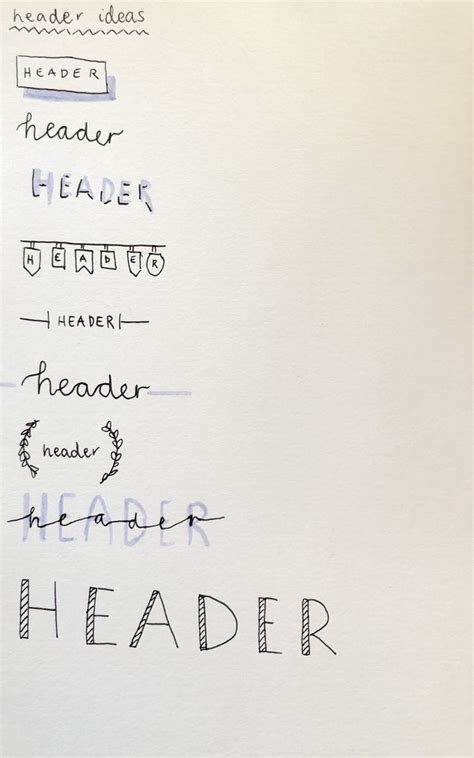 header ideas
HEADER
header
HEADER
HEADER
HEADER
header
header
HEADER
header
HEADER